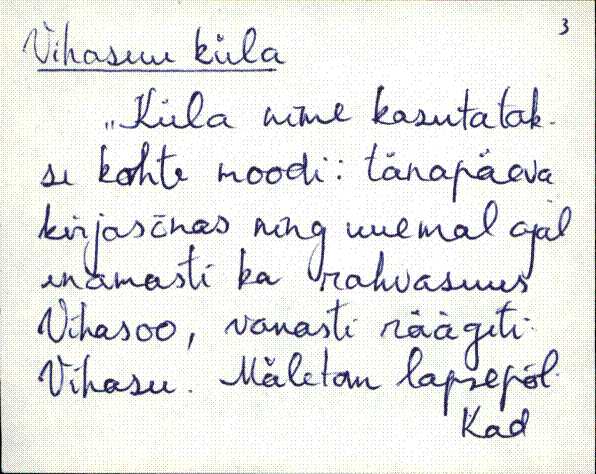 3
Vihasuu küla
„Küla nime kasutatak-
se kahte moodi: tänapäeva
kirjasõnas ning uuemal ajal
enamasti ka rahvasuus
Vihasoo, vanasti räägiti:
Vihasu. Mäletan lapsepõl-
Kad